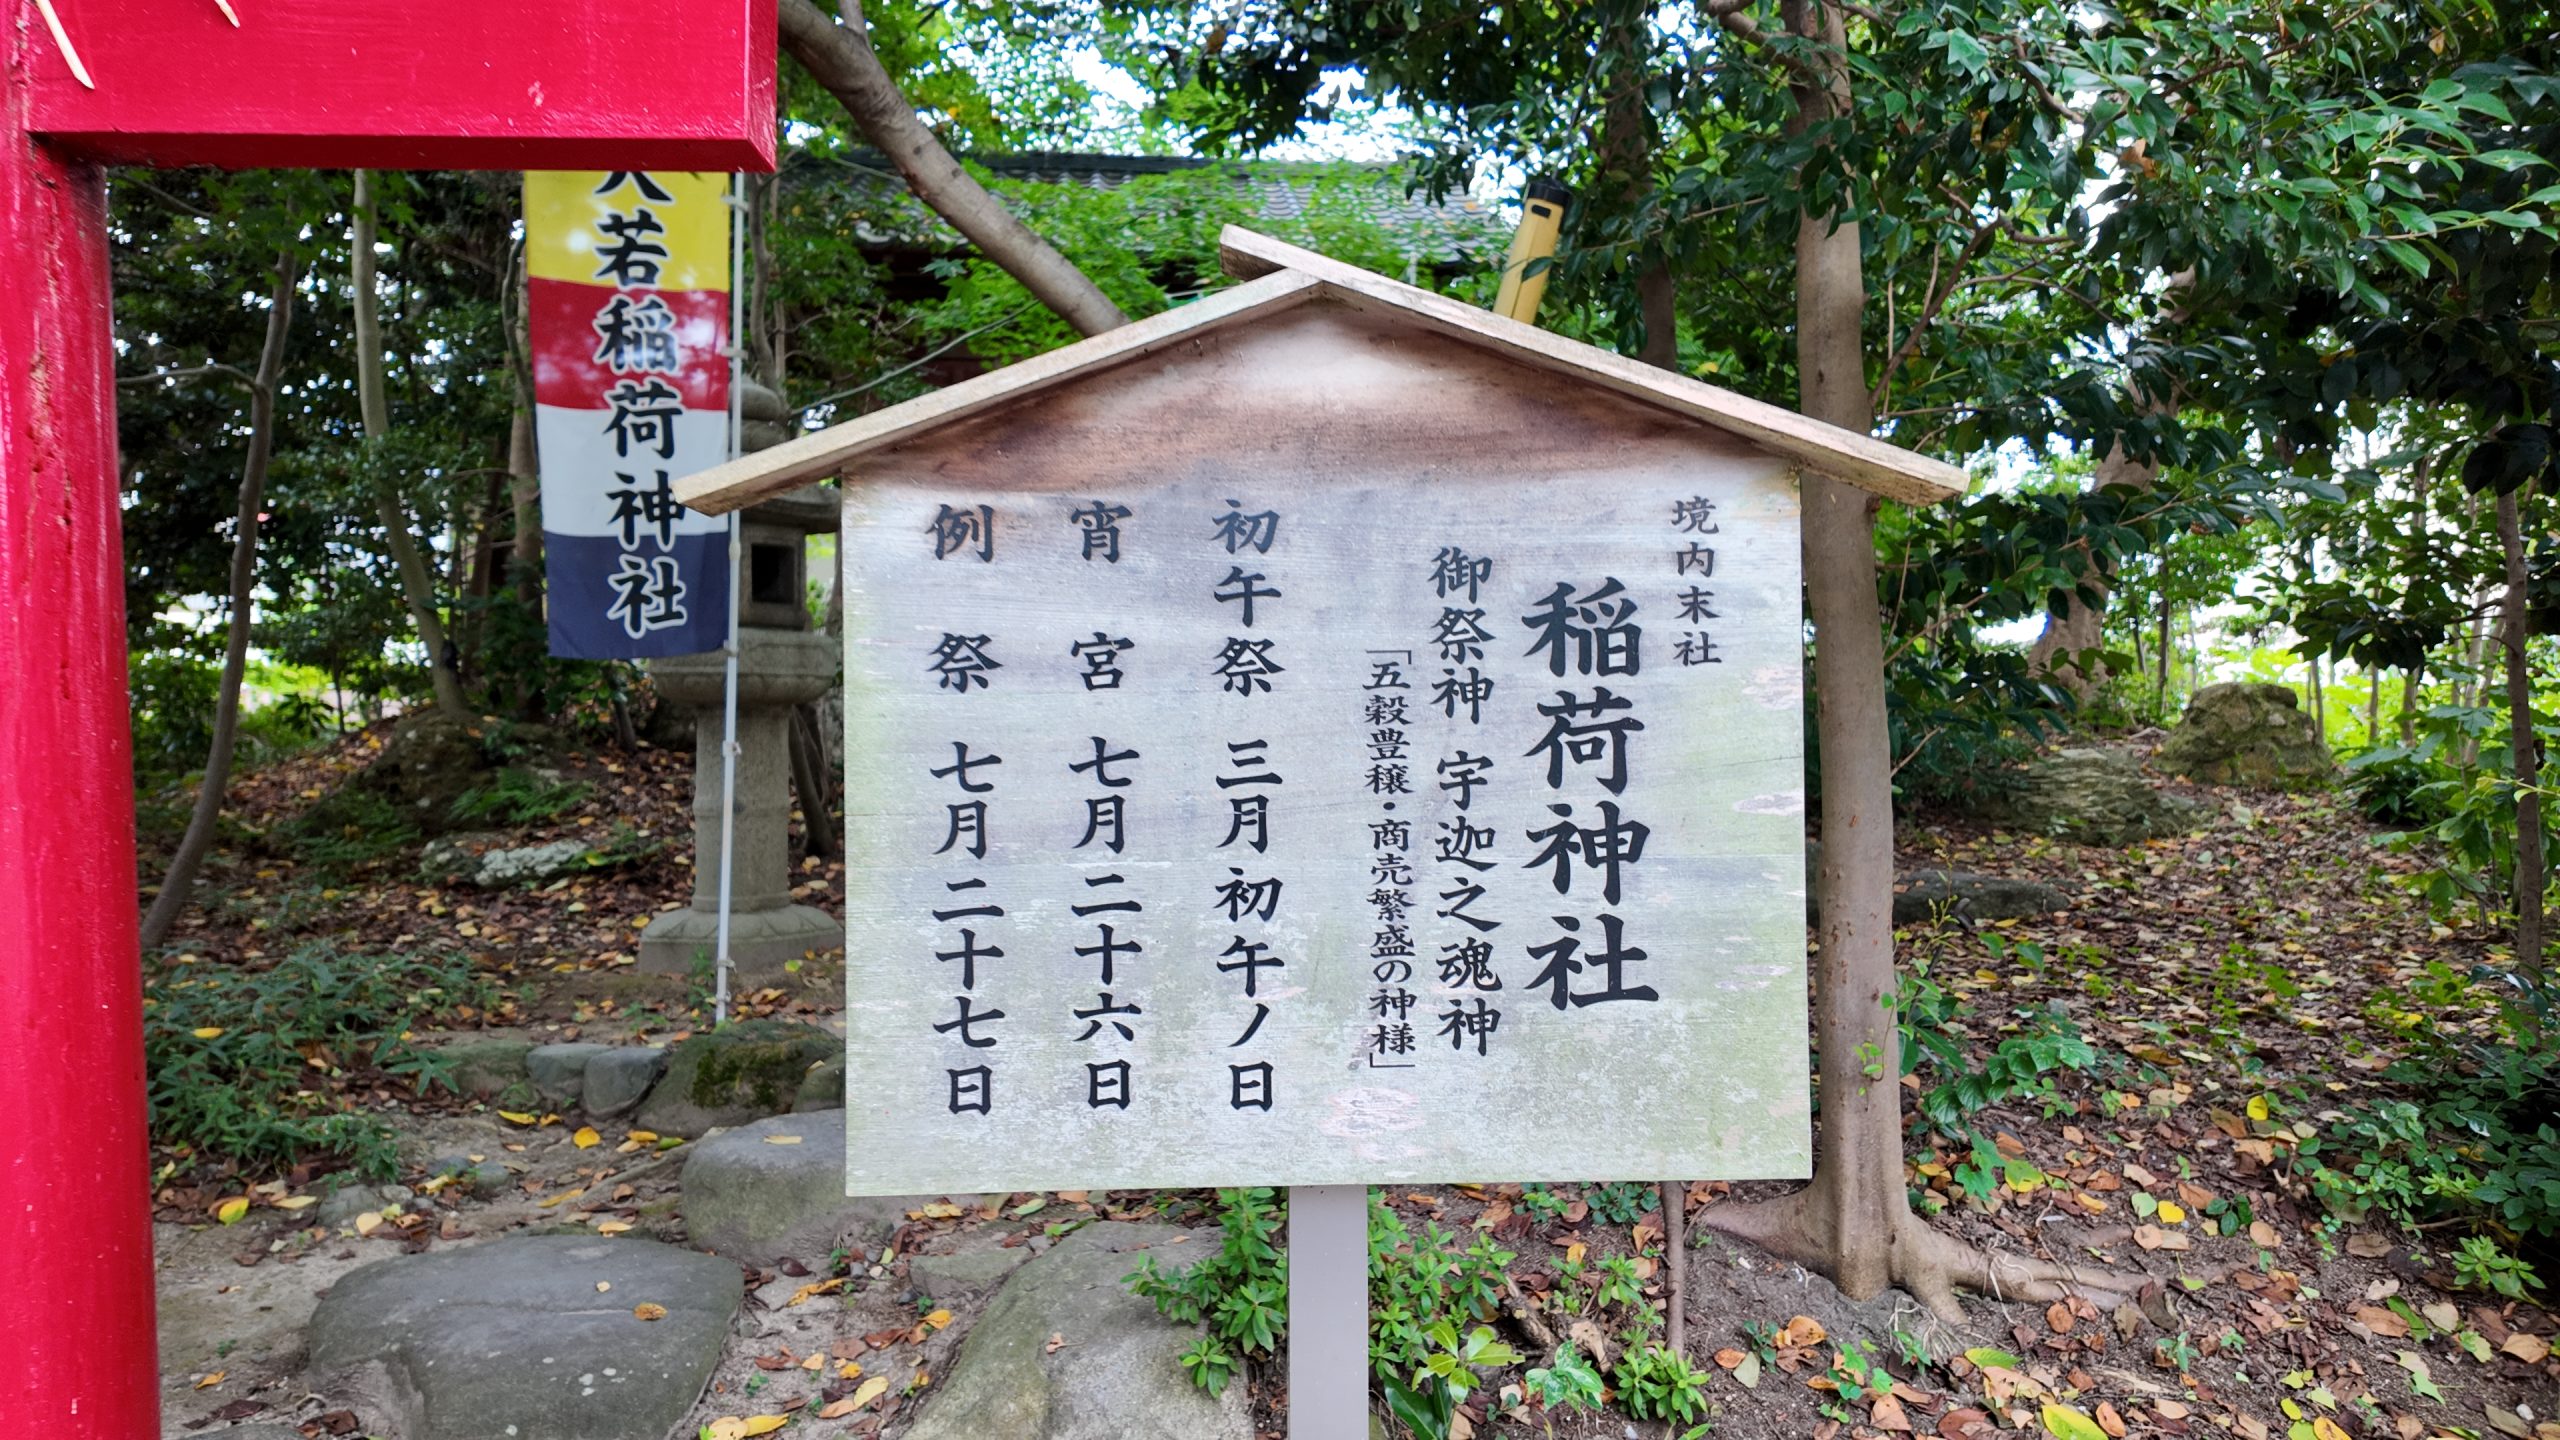 境内末社
稲荷神社
御祭神 宇迦之魂神
「五穀豊穣・商売繁盛の神様」
初午祭 三月初午ノ日
宵宮 七月二十六日
例祭 七月二十七日
若稲荷神社